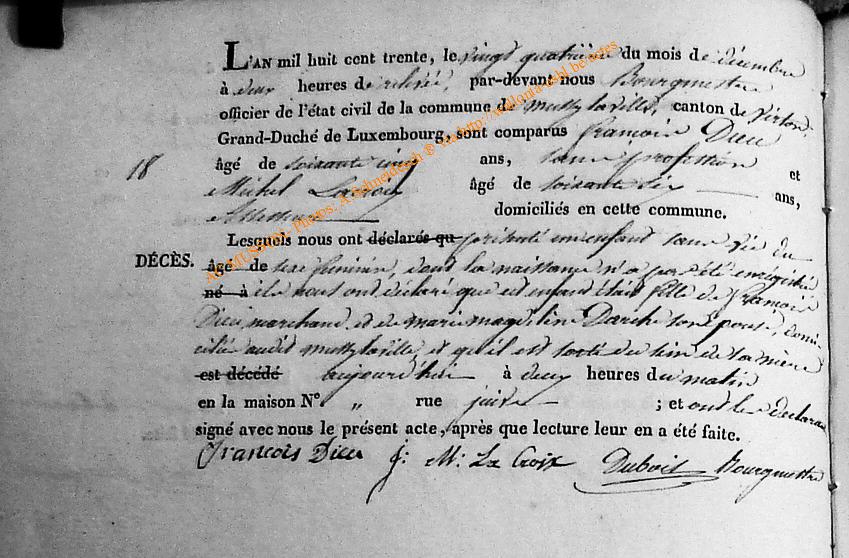 L'AN mil huit cent trente, le vingt quatrième du mois de décembre
à deux heures de relevée, par-devant nous Bourgmestre
officier de l'état civil de la commune de mussy la ville, canton de Virton,
Grand-Duché de Luxembourg, sont comparus François Dieu
âgé de soixante cinq ans, sans profession et
18 Michel Lacroix âgé de soixante six ans,
domiciliés en cette commune.
Lesquels nous ont déclarés qu présenté un enfant sans vie du
DÉCÈS. âgé de sexe féminin, dont la naissance n'a pas été enregistrée
né à ils nous ont déclaré que cet enfant était fille de François
Dieu marchand, et de marie magdeline Darche son épouse, domi
ciliés audit mussy la ville, et qu'il est sorti du sein de sa mère
est décédé aujourd'hui à deux heures du matin
en la maison N° „ rue juive ; et ont les déclarans
signé avec nous le présent acte, après que lecture leur en a été faite.
François Dieu j: M: La Croix Dubois Bourgmestre